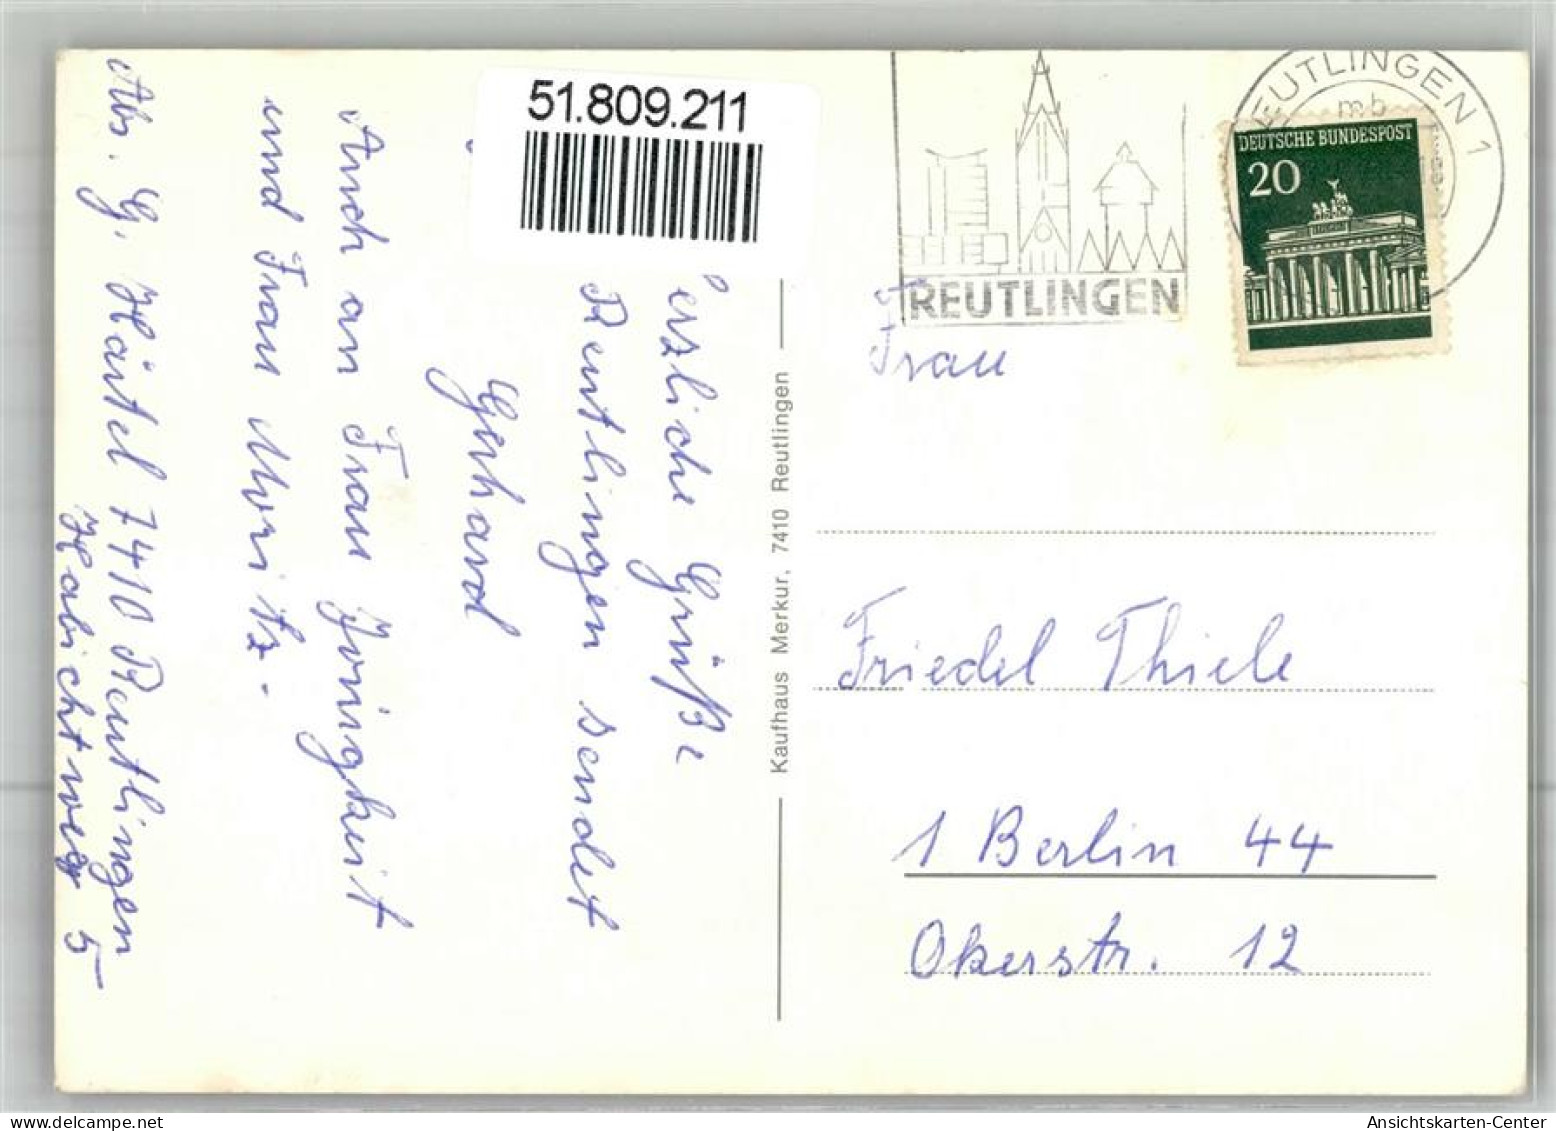 51.809.211
erzliche Grüße
Reutlingen sendet
Gerhard
Auch an Frau
und Frau Moritz.
Abs. G. Härtel 7410 Reutlingen
Habichtweg 5
Kaufhaus Merkur, 7410 Reutlingen
REUTLINGEN
EUTLINGEN 1
mb
DEUTSCHE BUNDESPOST
20
Frau
Friedel Thiele
1 Berlin 44
Okerstr. 12
Ansichtskarten-Center